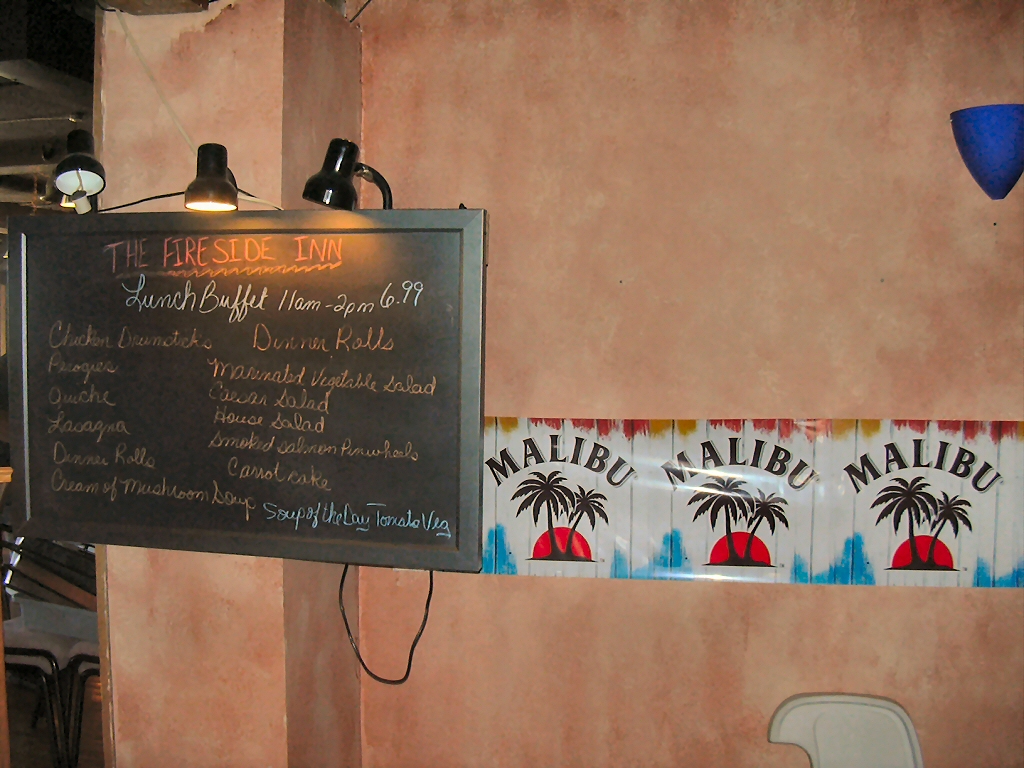 THE FIRESIDE INN
Lunch Buffet 11am-2pm 6.99
Chicken Drumsticks
Perogies
Quiche
Lasagna
Dinner Rolls
Cream of Mushroom Soup
Dinner Rolls
Marinated Vegetable Salad
Caesar Salad
House Salad
Smoked salmon Pinwheels
Carrot cake
Soup of the Day Tomato Veg
MALIBU
MALIBU
MALIBU